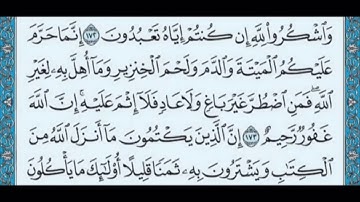 وَٱشْكُرُوا۟ لِلَّهِ إِن كُنتُمْ إِيَّاهُ تَعْبُدُونَ ١٧٢ إِنَّمَا حَرَّمَ
عَلَيْكُمُ ٱلْمَيْتَةَ وَٱلدَّمَ وَلَحْمَ ٱلْخِنزِيرِ وَمَآ أُهِلَّ بِهِۦ لِغَيْرِ
ٱللَّهِ ۖ فَمَنِ ٱضْطُرَّ غَيْرَ بَاغٍ وَلَا عَادٍ فَلَآ إِثْمَ عَلَيْهِ ۚ إِنَّ ٱللَّهَ
غَفُورٌ رَّحِيمٌ ١٧٣ إِنَّ ٱلَّذِينَ يَكْتُمُونَ مَآ أَنزَلَ ٱللَّهُ مِنَ
ٱلْكِتَٰبِ وَيَشْتَرُونَ بِهِۦ ثَمَنًا قَلِيلًا أُو۟لَٰٓئِكَ مَا يَأْكُلُونَ